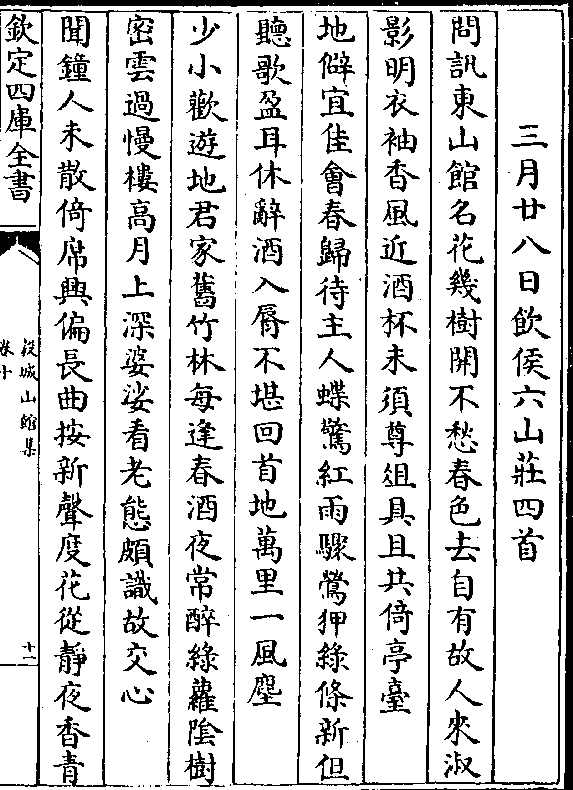 三月廿八日飲侯六山莊四首
問訊東山館名花幾樹開不愁春色去自有故人來淑
影明衣袖香風近酒杯未須尊俎具且共倚亭臺
地僻宜佳會春歸待主人蝶驚紅雨驟鶯狎綠條新但
聽歌盈耳休辭酒入脣不堪回首地萬里一風塵
少小歡遊地君家舊竹林每逢春酒夜常醉綠蘿隂樹
密雲過慢樓高月上深婆娑看老態頗識故交心
聞鐘人未散倚席興偏長曲按新聲度花從靜夜香青
欽定四庫全書
穀城山館集
卷十
十一